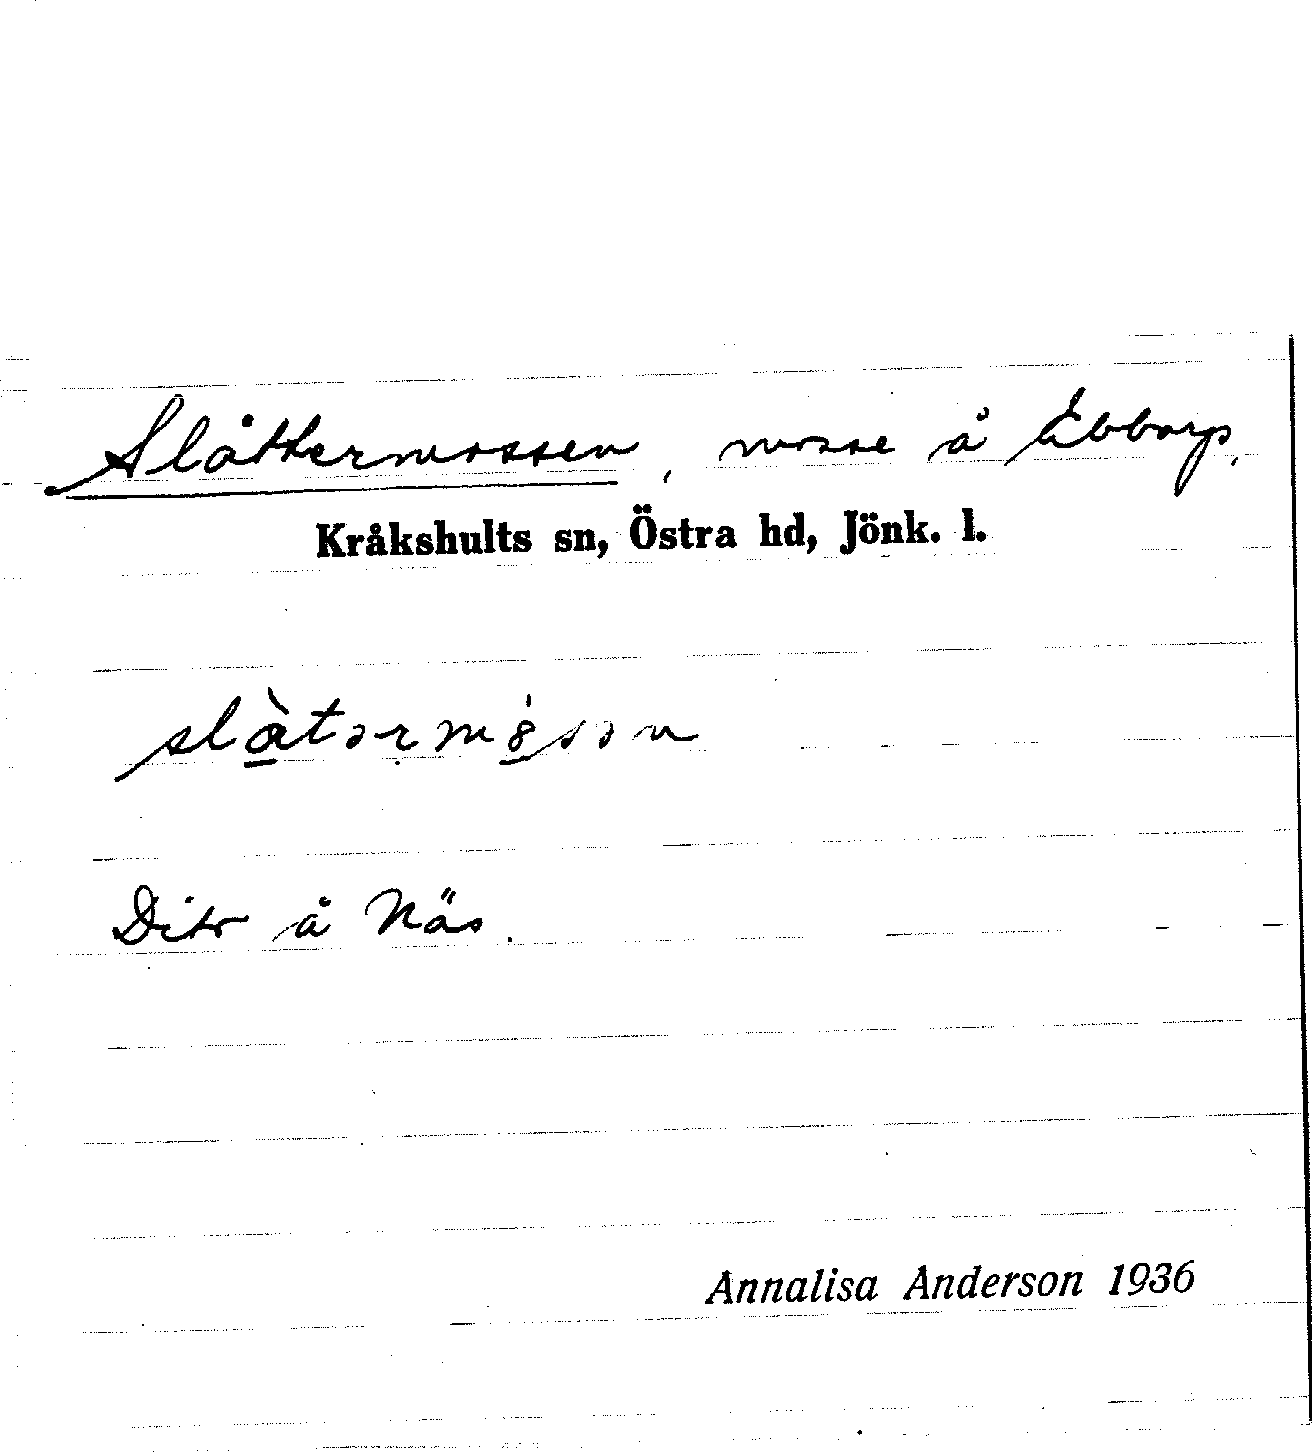 Slåttermossen, mosse å Ebbarp,
Kråkshults sn, Östra hd, Jönk. l.
Dito å Näs.
Annalisa Anderson 1936